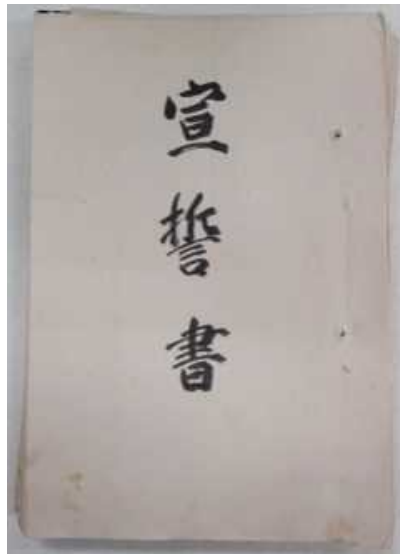 宣誓書